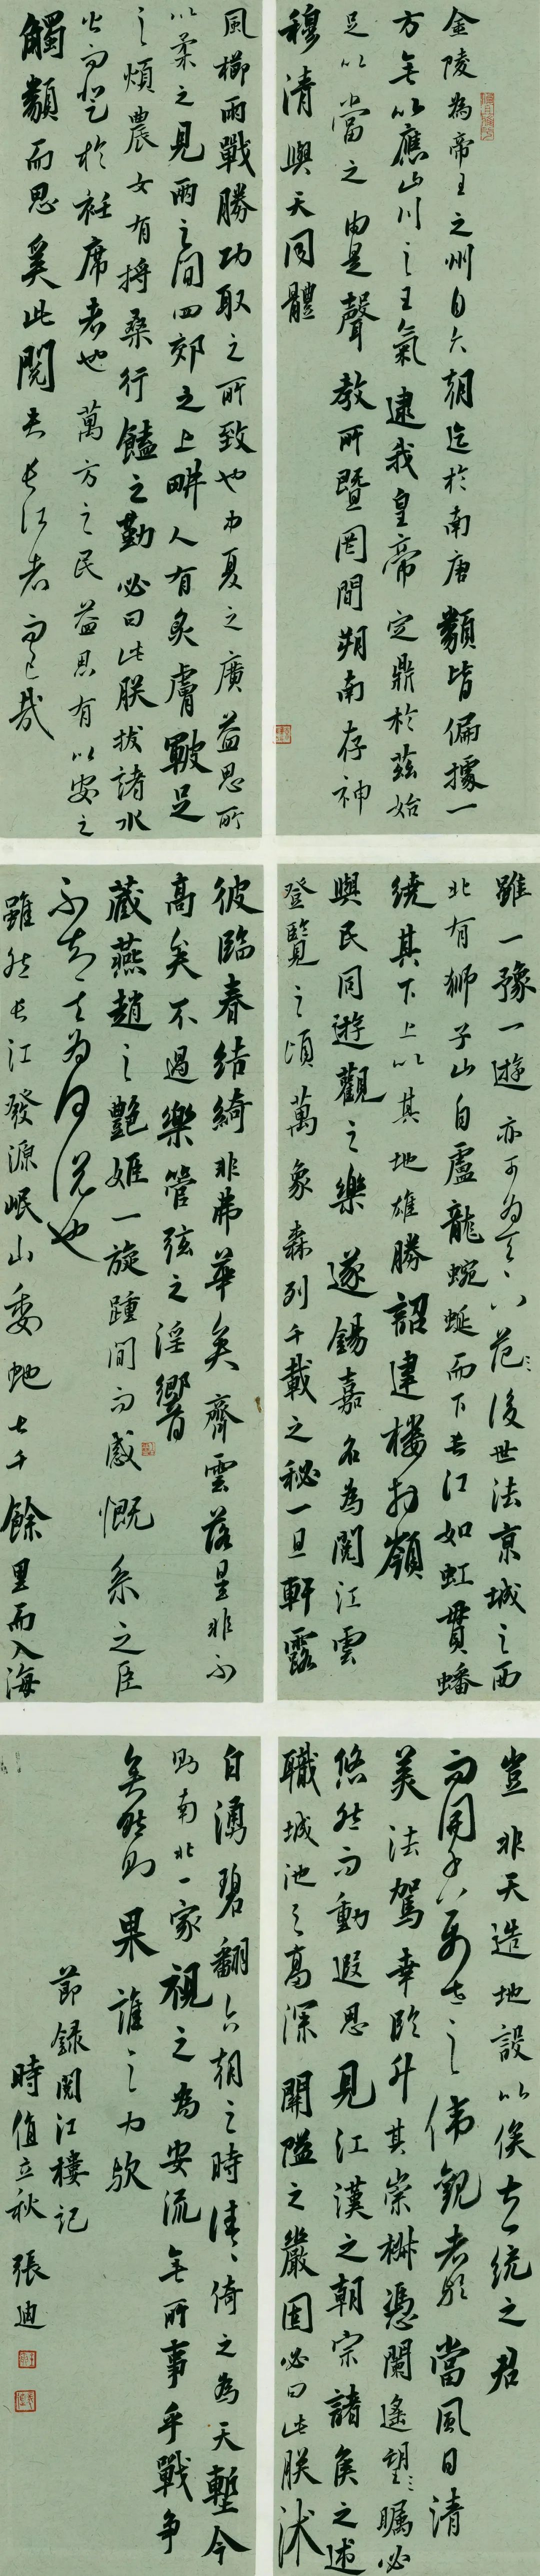 金陵為帝王之州自六朝迄於南唐類皆偏據一
方無以應山川之王氣逮我皇帝定鼎於茲始
足以當之由是聲教所暨罔間朔南存神
穆清與天同體
雖一豫一遊亦可為天下范後世法京城之西
北有獅子山自盧龍蜿蜒而下長江如虹貫蟠
繞其下上以其地雄勝詔建樓於嶺
與民同遊觀之樂遂錫嘉名為閱江雲
登覽之頃萬象森列千載之秘一旦軒露
豈非天造地設以俟大一統之君
而開千八萬世之偉觀者歟當風日清
美法駕幸臨升其崇椒憑闌遙望矚必
悠然而動遐思見江漢之朝宗諸侯之述
職城池之高深關隘之嚴固必曰此朕沐
風櫛雨戰勝功取之所致也中夏之廣益思所
以柔之見兩之間四郊之上畊人有炙膚皸足
之煩農女有捋桑行饁之勤必曰此朕拔諸水
火而登於衽席者也萬方之民益思有以安之
觸類而思奚此閱夫長江者而已哉
彼臨春結綺非弗華矣齊雲落星非不
高矣不過樂管弦之淫響
藏燕趙之艷姬一旋踵間而感慨系之臣
不知其為何說也
雖然長江發源岷山委蛇七千餘里而入海
白湧碧翻六朝之時往往倚之為天塹今
則南北一家視之為安流無所事乎戰爭
矣然則果誰之力歟
節録閱江樓記
時值立秋 張迪